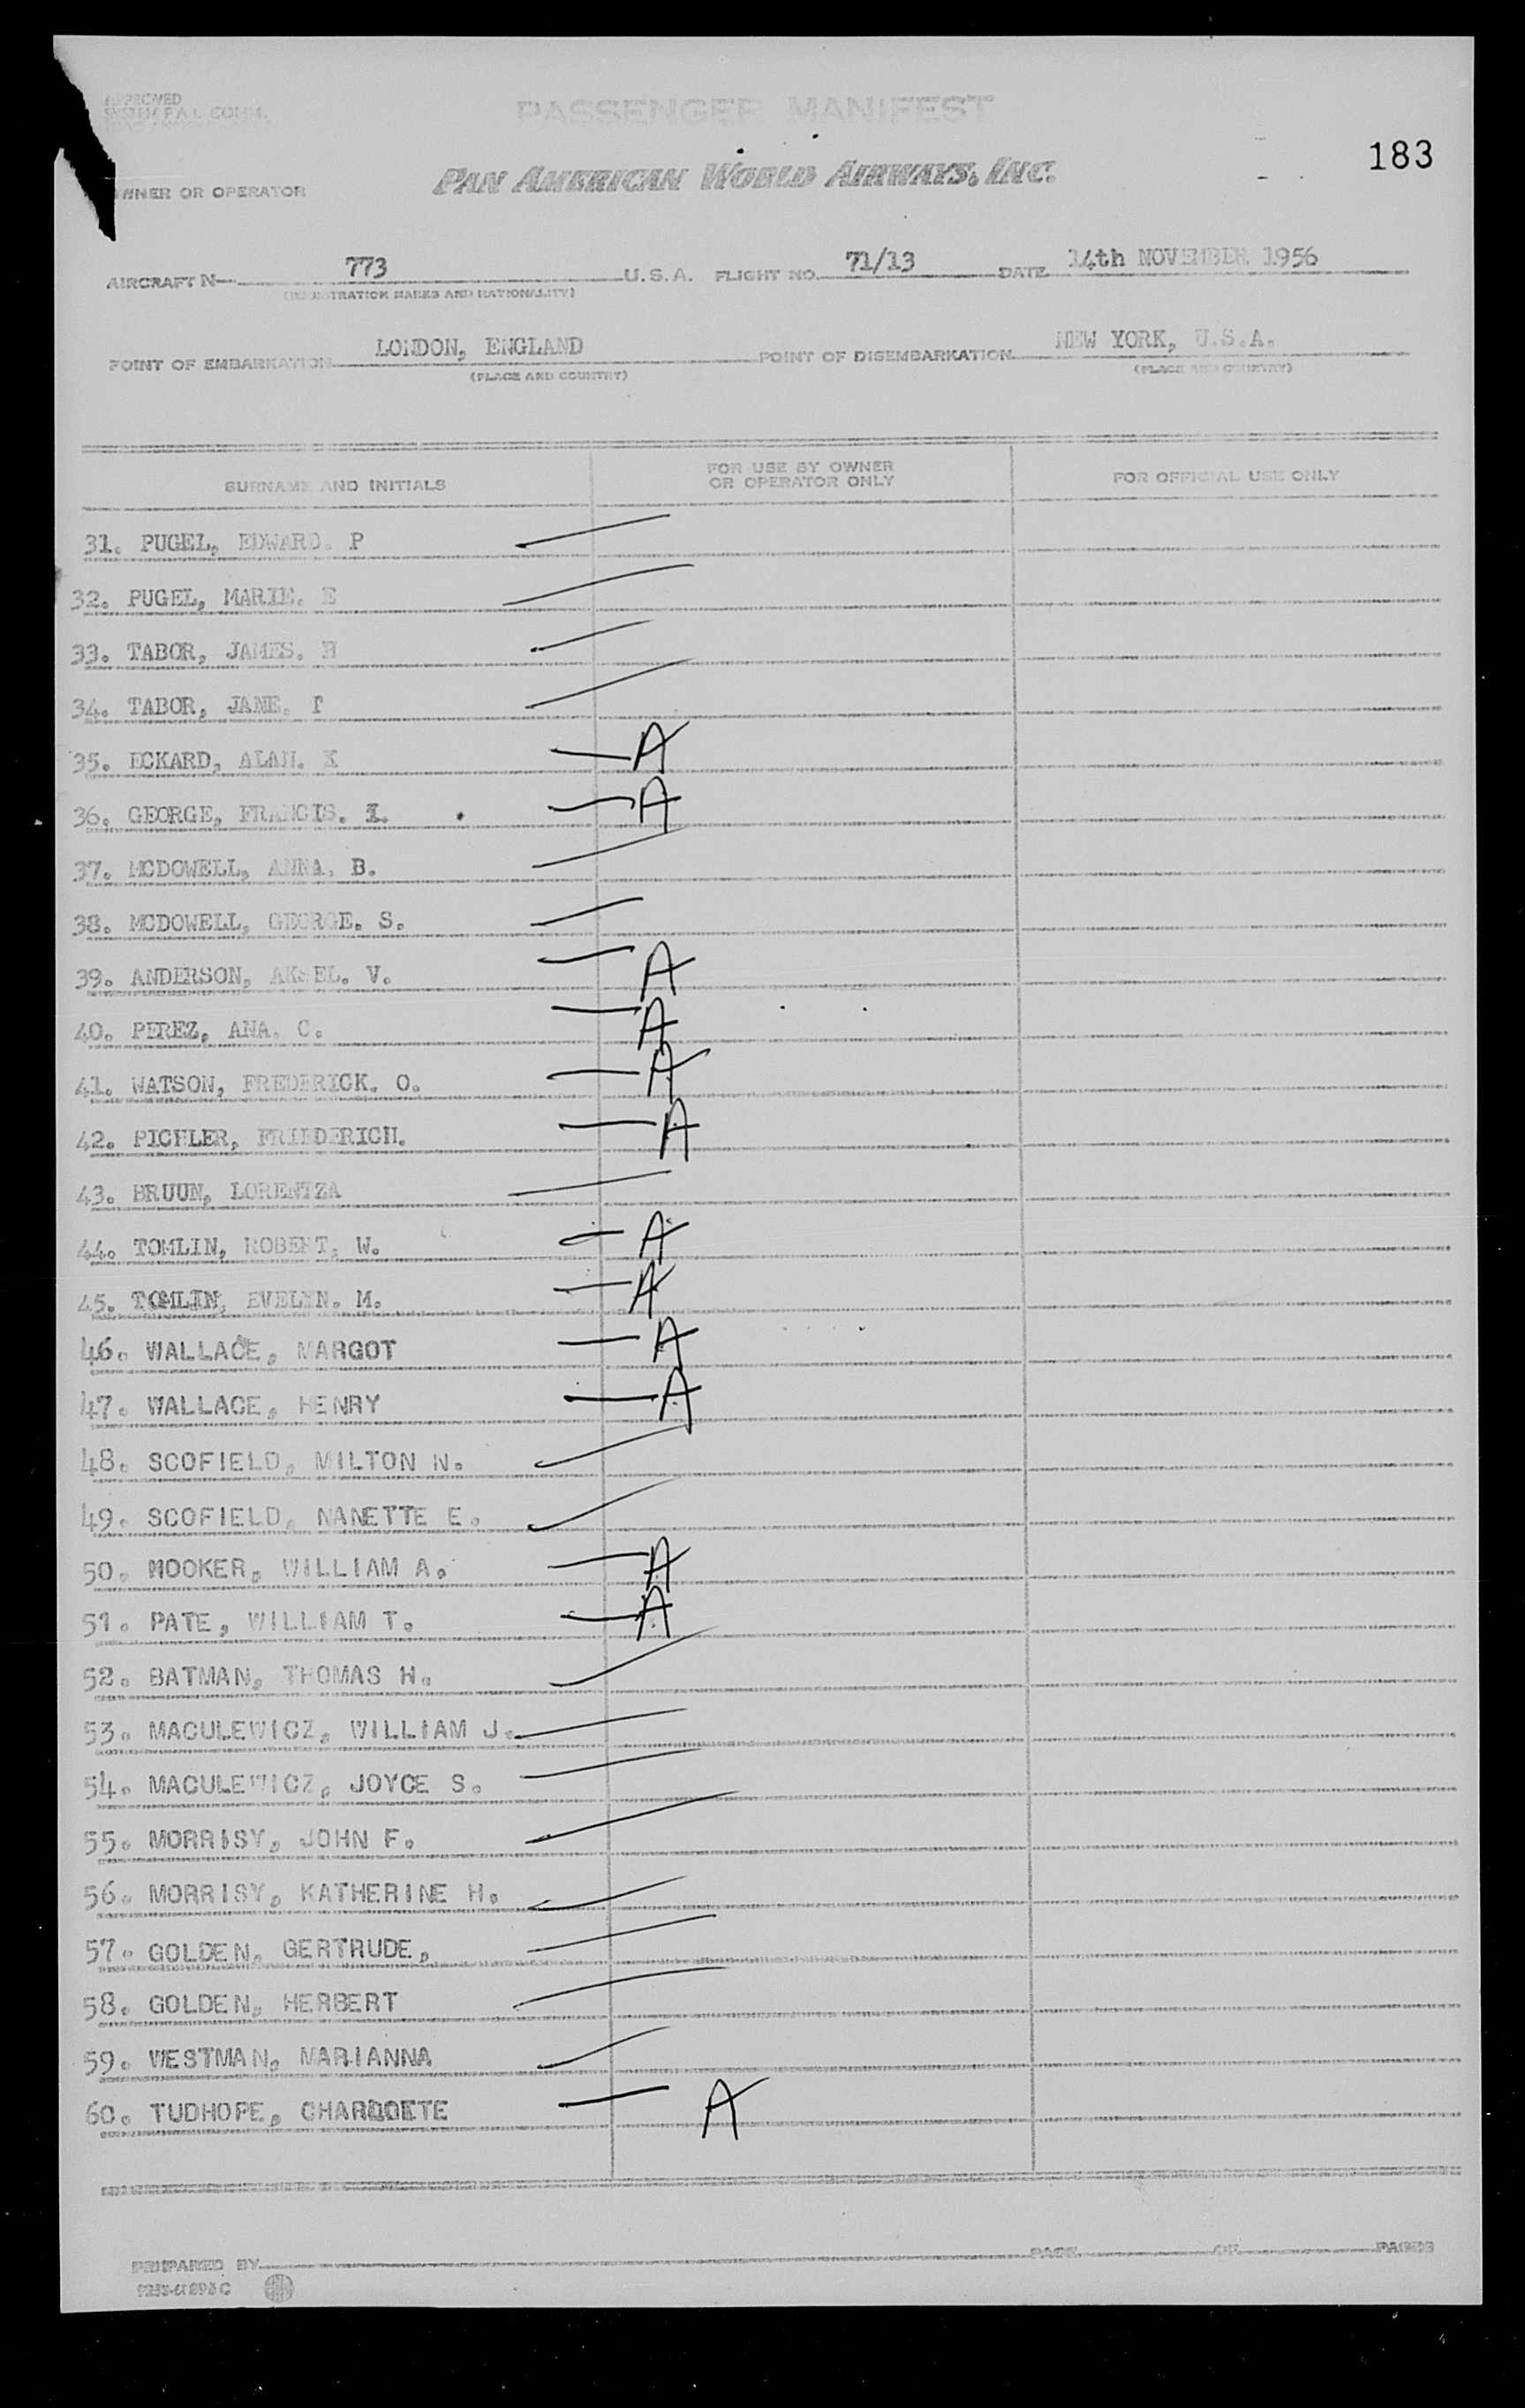 APPROVED
PASSENGER MANIFEST
183
PAN AMERICAN WORLD AIRWAYS, INC.
OWNER OR OPERATOR
AIRCRAFT N 773 U.S.A. FLIGHT NO. 71/13 DATE 14th NOVEMBER 1956
(REGISTRATION MARKS AND NATIONALITY)
POINT OF EMBARKATION LONDON, ENGLAND POINT OF DISEMBARKATION NEW YORK, U.S.A.
(PLACE AND COUNTRY) (PLACE AND COUNTRY)
SURNAME AND INITIALS FOR USE BY OWNER OR OPERATOR ONLY FOR OFFICIAL USE ONLY
31. PUGEL, EDWARD. P
32. PUGEL, MARIE. E
33. TABOR, JAMES. H
34. TABOR, JANE.
35. ECKARD, ALAN. K A
36. GEORGE, FRANCIS. I. A
37. MCDOWELL, ANNA. B.
38. MCDOWELL, GEORGE. S.
39. ANDERSON, AKSEL. V. A
40. PEREZ, ANA. C. A
41. WATSON, FREDERICK. O. A
42. PICHLER, FRIEDERICH. A
43. BRUUN, LORENTZA
44. TOMLIN, ROBERT, W. A
45. TOMLIN, EVELYN. M. A
46. WALLACE, MARGOT A
47. WALLACE, HENRY A
48. SCOFIELD, MILTON N.
49. SCOFIELD, NANETTE E.
50. HOOKER, WILLIAM A. A
51. PATE, WILLIAM T. A
52. BATMAN, THOMAS H.
53. MACULEWICZ, WILLIAM J.
54. MACULEWICZ, JOYCE S.
55. MORRISY, JOHN F.
56. MORRISY, KATHERINE H.
57. GOLDEN, GERTRUDE,
58. GOLDEN, HERBERT
59. WESTMAN, MARIANNA
60. TUDHOPE, A
PREPARED BY PAGE OF PAGES